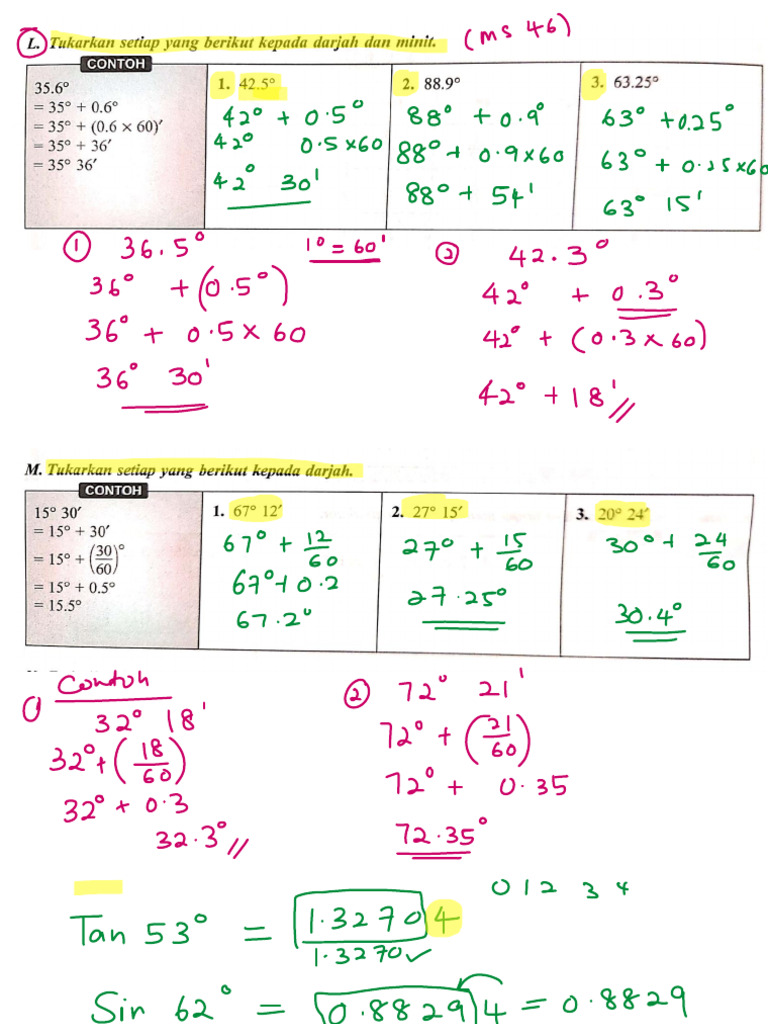 L. Tukarkan setiap yang berikut kepada darjah dan minit. (ms 46)
CONTOH
35.6°
= 35° + 0.6°
= 35° + (0.6 × 60)′
= 35° + 36′
= 35° 36′
1. 42.5°
42° + 0.5°
42° 0.5×60
42° 30'
2. 88.9°
88° + 0.9°
88° + 0.9×60
88° + 54'
3. 63.25°
63° + 0.25°
63° + 0.25×60
63° 15'
① 36.5° 1° = 60'
36° + (0.5°)
36° + 0.5 × 60
36° 30'
② 42.3°
42° + 0.3°
42° + (0.3 × 60)
42° + 18' //
M. Tukarkan setiap yang berikut kepada darjah.
CONTOH
15° 30′
= 15° + 30′
= 15° + (30/60)°
= 15° + 0.5°
= 15.5°
1. 67° 12′
67° + 12/60
67° + 0.2
67.2°
2. 27° 15′
27° + 15/60
27.25°
3. 20° 24′
30° + 24/60
30.4°
① Contoh
32° 18'
32° + (18/60)
32° + 0.3
32.3° //
② 72° 21'
72° + (21/60)
72° + 0.35
72.35°
0 1 2 3 4
Tan 53° = 1.32704
1.3270 ✓
Sin 62° = 0.88294 = 0.8829